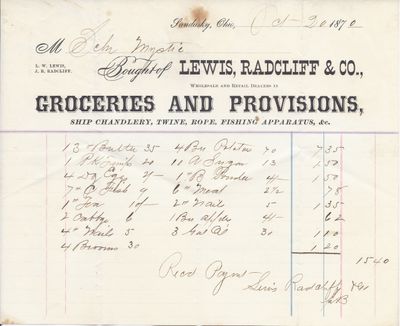 Sandusky, Ohio, Oct 20 1870
M Schr Mystic
L. W. LEWIS,
J. R. RADCLIFF.
Bought of LEWIS, RADCLIFF & CO.,
WHOLESALE AND RETAIL DEALERS IN
GROCERIES AND PROVISIONS,
SHIP CHANDLERY, TWINE, ROPE, FISHING APPARATUS, &c.
13 " Butter 35 4 Bu Potatoes 70 7 35
1 20 11 A Sugar 13 1,50
4 Doz Eggs 1 B Powder 4/- 1,50
7 " C Fish 9 6 " Meal 2 1/2 78
1 " Tea 10/- 2 " Nails 5 1,35
2 Cabbg 6 1 Bu apples 4/- 62
4 " Nails 5 3 Gal Oil 30 1 10
4 Brooms 30 1 20
15 40
Recd Paymt
Lewis Radcliff & Co